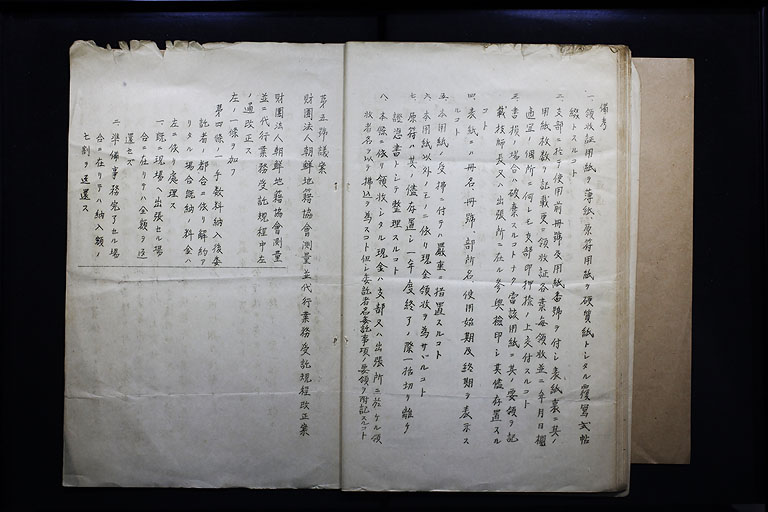 備考
一、領收証用紙ヲ薄紙、原符用紙ヲ硬質紙トシタル複寫式帖
綴トスルコト
二、支部ニ於テ使用前冊號及用紙番號ヲ付シ表紙裏ニ其ノ
用紙枚數ヲ記載更ニ領收証各葉毎領收並ニ年月日欄
適宜ノ個所ニ何レモ支部印押捺ノ上交付スルコト
三、書損ノ場合ハ破棄スルコトナク當該用紙ニ其ノ要領ヲ記
載技師長又ハ出張所ニ在ル參與檢印シ其儘存置スル
コト
四、表紙ニハ冊名、冊號、部所名、使用始期及終期ヲ表示ス
ルコト
五、本用紙ノ受拂ニ付テハ嚴重ニ措置スルコト
六、本用紙以外ノモノニ依リ現金領收ヲ為サザルコト
七、原符ハ其ノ儘存置シ一年度終了ノ際一括切リ離シ
證憑書トシテ整理スルコト
八、本條ニ依リ領收シタル現金ハ支部又ハ出張所ニ於ケル領
收者名ヲ以テ拂込ヲ為スコト但シ委託者名委託事項ノ要領ヲ附記スルコト
第五號議案
財團法人朝鮮地籍協會測量並代行業務受託規程改正案
財團法人朝鮮地籍協會測量
並ニ代行業務受託規程中左
ノ通改正ス
左ノ一條ヲ加フ
第四條ノ一手數料納入後委
託者ノ都合ニ依リ解約ヲ
リタル場合既納ノ料金ハ
左ニ依リ處理ス
一、既ニ現場ヘ出張セル場
合ニ在リテハ全額ヲ返
還セズ
二、準備事務完了セル場
合ニ在リテハ納入額ノ
七割ヲ返還ス